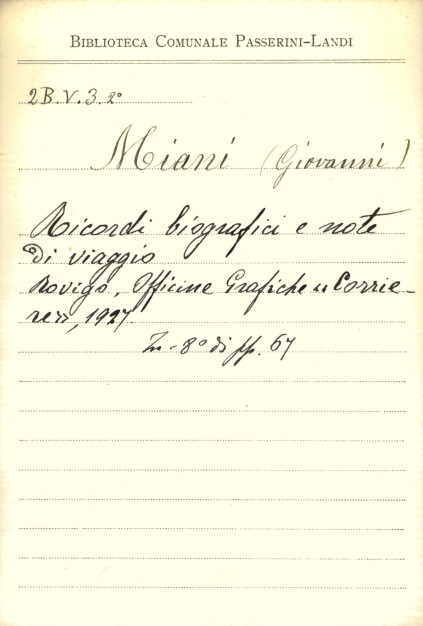 BIBLIOTECA COMUNALE PASSERINI-LANDI
2B.V.3.2°
Miani (Giovanni)
Ricordi biografici e note
di viaggio
Rovigo, Officine Grafiche «Corrie-
re», 1927.
In-8° di pp. 67